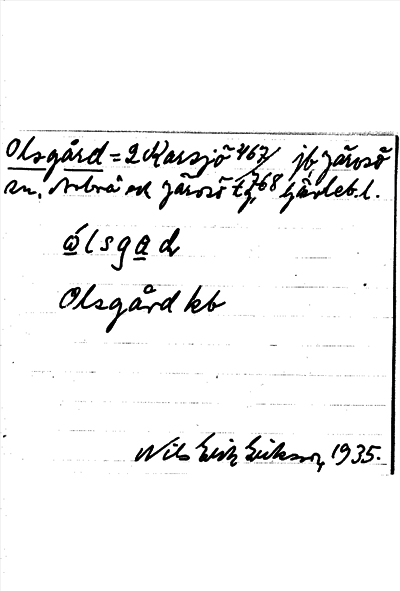 Olsgård = 2 Karsjö 467/768 jb, Järvsö
sn, Arbrå och Järvsö tg, Gävleb. l.
ólsgad,
Olsgård kb
Nils Erik Eriksson, 1935.